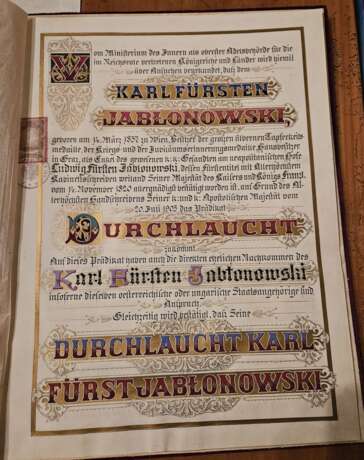 Vom Ministerium des Innern als oberster Adelsbehörde für die
im Reichsrate vertretenen Königreiche und Länder wird hiemit
über Ansuchen beurkundet, daß dem
KARL FÜRSTEN
JABŁONOWSKI,
geboren am 14. März 1857 in Wien, Besitzer der großen silbernen Tapferkeits-
medaille, der Kriegs- und der Jubiläumserinnerungsmedaille, Hausbesitzer
in Graz, als Enkel des gewesenen k: k: Gesandten am neapolitanischen Hofe
Ludwig Fürsten Jabłonowski, dessen Fürstentitel mit Allerhöchstem
Kabinettschreiben weiland Seiner Majestät des Kaisers und Königs Franz I.
vom 14. November 1820 allergnädigst bestätigt worden ist, auf Grund des Al-
lerhöchsten Handschreibens Seiner k: und k: Apostolischen Majestät vom
20. Juni 1905 das Prädikat
DURCHLAUCHT
zukommt.
Auf dieses Prädikat haben auch die direkten ehelichen Nachkommen des
Karl Fürsten Jabłonowski
insoferne dieselben oesterreichische oder ungarische Staatsangehörige sind
Anspruch.
Gleichzeitig wird bestätigt, daß Seine
DURCHLAUCHT KARL
FÜRST JABŁONOWSKI